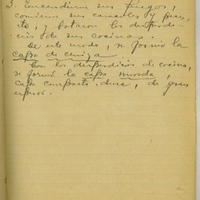 3. Encendieron sus fuegos,
comieron sus caracoles y pesca-
do, y botaron los desperdi-
cios de sus cocinas.
De este modo, se formó la
capa de ceniza.
Con los desperdicios de cocina,
se formó la capa morada,
capa compacta, dura, de gran